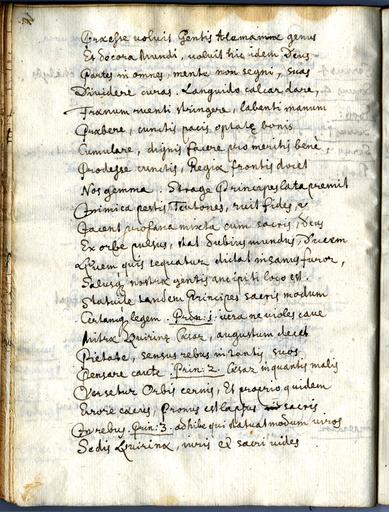 Praeesse voluit. Gentis Alemaninae genus
Et decora Mundi, voluit hic idem Deus
Partes in omnes, mente non segni, suas
Dividere curas. Languido calcar dare,
Fraenum ruenti stringere, labenti manum
Praebere, cunctis pacis optatae bonis
Cumulare, dignis favere pro meritis bene,
Prodesse cunctis, Regiae frontis docet
Nos gemma. Strage Principes lata premit
Inimica pestis Teutones, ruit fides, et
Jacent profana mixta cum sacris, Deus
Ex orbe pulsus, stat dubius mundus, Ducem
Quem quis sequatur dictat insanus furor,
Salusque nostrae gentis ancipiti loco est.
Statuite tandem Principes sacris modum
Certamque legem. Prin: 1. vera ne violes cave
Mitrae Quirine Caesar, augustum decet
Pietate, sensus rebus in tantis suos
Pensare caute. Prin: 2. Caesar in quantis malis
Versetur Orbis cernis, Et proprio quidem
Errore caecus, Pronus est lapsus sacris
In rebus. Prin: 3. adhibe qui statuat modum viros
Sedis Quirinae, iuris et sacri vides